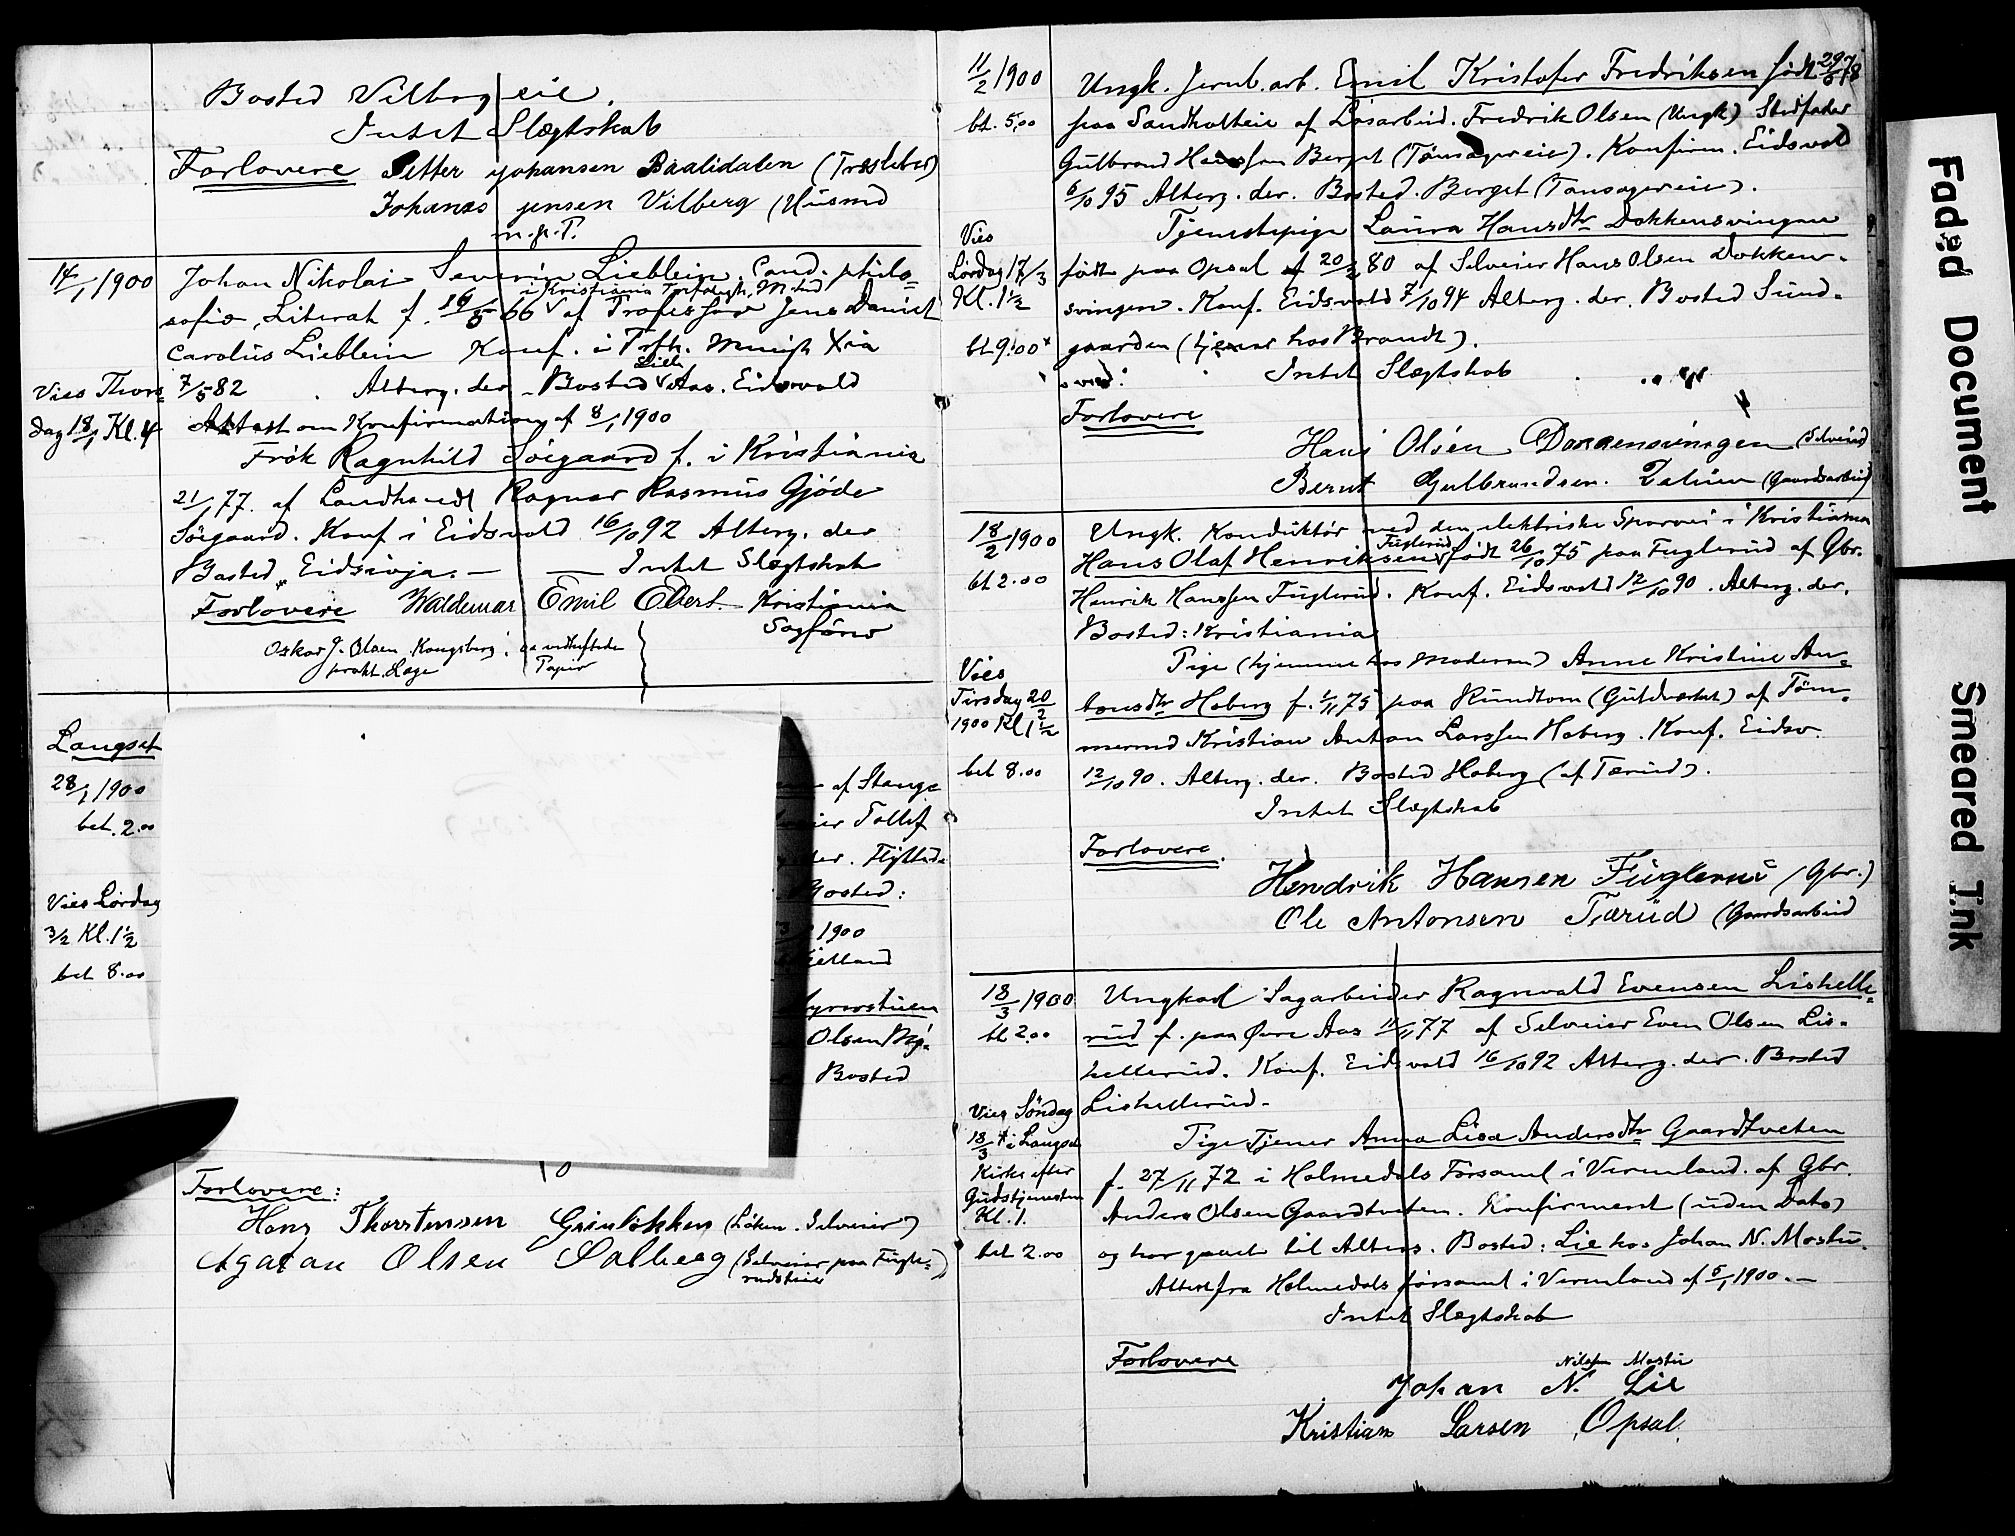 Bosted Vilberg eie.
Intet Slægtskab
Forlovere Petter Johansen Baalidalen (Træsleber)
Johanes Jensen Vilberg (Husmd
m. J.
14/1 1900
Johan Nikolai Severin Lieblein, Cand. philo-
i Kristiania Trefoldigh. M.
sofiæ, Literat f. 16/5 66 af Professor Jens Daniel
Carolus Lieblein Konf. i Trfh. Menigh Xia
Lieh
7/5 82 Alterg. der Bosted Aas. Eidsvold
Vies Thors-
dag 18/1 Kl. 4
Attest om Konfirmation af 8/1 1900
Frøk Ragnhild Søegaard f. i Kristiania
21/1 77 af Landhandl Ragnar Rasmus Gjöde
Søegaard. Konf i Eidsvold 16/10 92 Alterg. der
Bosted Eidsvoja. — Intet Slægtskab
Forlovere Waldemar Emil Ebert Kristiania
Sagfører
Oskar J. Olsen Kongsberg, se vedheftede
prakt. Læge Papir
Langset
28/1 1900
bet. 2.00
Vies Lørdag
3/2 Kl. 1½
bet 8.00
af Stange
ier Tollef
der. Flyttede
Bosted:
1900
Olsen My-
Bosted
Forlovere:
Hans Thorstensen Grinløkken (Løken. Selveier)
Agaton Olsen Solberg (Selveier paa Fugle-
rudseie)
11/2 1900
bt. 5.00
Ungk. Jernb. arb. Emil Kristofer Fredriksen født 29/5 78
paa Sandholteie af Løsarbeid. Fredrik Olsen (Ungk) Stedfader
Gulbrand Hansen Berget (Tønsagereie). Konfirm. Eidsvold
6/10 95 Alterg. der. Bosted. Berget (Tønsagereie).
Vies
Lørdag 17/3
Kl. 1½
bt 9.00
Tjenestepige Laura Hansdtr Dokkensvingen
født paa Opsal 20/2 80 af Selveier Hans Olsen Dokken-
svingen. Konf. Eidsvold 7/10 94 Alterg. der. Bosted Sund-
gaarden (tjener hos Brandt).
Intet Slægtskab
Forlovere
Hans Olsen Dokkensvingen (Selveier)
Bernt Gulbrandsen (Gaardsarbeid)
18/2 1900
bt 2.00
Ungk. Konduktør ved den elektriske Sporvei i Kristiania
Fuglerud
Hans Olaf Henriksen født 26/10 75 paa Fuglerud af Gbr.
Henrik Hanssen Fuglerud. Konf. Eidsvold 12/10 90. Alterg. der.
Bosted: Kristiania
Vies
Tirsdag 20/2
1900 Kl 1½
bet 8.00
Pige (hjemme hos Moderen) Anne Kristine An-
tonsdtr Hoberg f. 1/11 75 paa Rundtom (Guldverket) af Tøm-
mermd Kristian Anton Larssen Hoberg. Konf. Eidsv.
12/10 90. Alterg. der. Bosted Hoberg (af Tærud).
Intet Slægtskab
Forlovere.
Hendrik Hansen Fuglerud (Gbr.)
Ole Antonsen Tærud (Gaardsarbeid
18/3 1900
bt 2.00
Ungkarl Sagarbeider Ragnvald Evensen Liskelle-
rud f. paa Øvre Aas 11/11 77 af Selveier Even Olsen Lis-
kellerud. Konf. Eidsvold 16/10 92 Alterg. der. Bosted
Liskellerud.
Vies Søndag
18/3 i Langset
Kirke efter
Gudstjenesten
Kl. 1.
bet 2.00
Pige Tjener Anna Lisa Andersdtr Gaardtveten
f. 27/11 72 i Holmedals Forsaml i Vermland af Gbr.
Anders Olsen Gaardtveten. Konfirmert (uden Dato)
og har gaaet til Alters. Bosted: Lie hos Johan N. Mostu.
Attest fra Holmedals forsaml i Vermland af 5/1 1900.—
Intet Slægtskab
Forlovere
Nilsen Mostu
Johan N. Lie
Kristian Larsen Opsal.
Faded Document
Smeared Ink